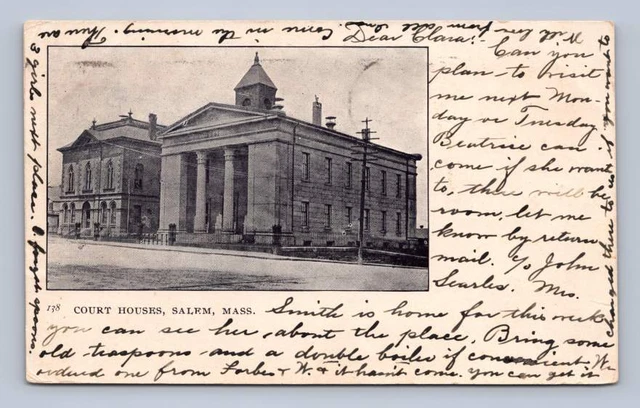 Dear Clara:- Can you
plan to visit
me next Mon-
day or Tuesday
Beatrice can
come if she wants
to, there will be
room, let me
know by return
mail. c/o John
Searles. Mrs.
Smith is home for this week
you can see her about the place. Bring some
old teaspoons and a double boiler if convenient. We
ordered one from Forbes & W. & it hasn't come. You can get it
changed there to it if you want to
come in the morning. Then
3 girls next place. I forgot
spoons.
138 COURT HOUSES, SALEM, MASS.